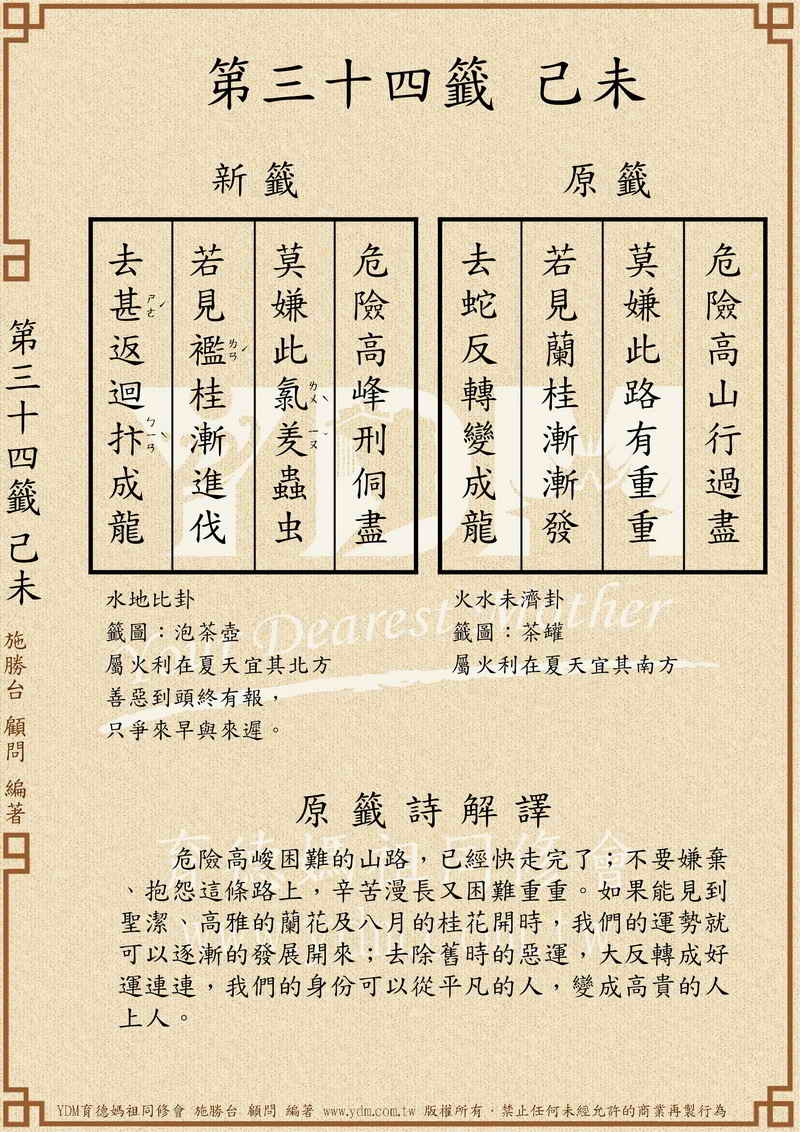 第三十四籤 己未
原籤
危險高山行過盡
莫嫌此路有重重
若見蘭桂漸漸發
去蛇反轉變成龍
火水未濟卦
籤圖：茶罐
屬火利在夏天宜其南方
新籤
危險高峰刑侗盡
莫嫌此氯羑蟲虫
ㄌㄨˋ
ㄧㄡˇ
若見襤桂漸進伐
ㄌㄢˊ
去甚返迴抃成龍
ㄕㄜˊ
ㄅㄧㄢˋ
水地比卦
籤圖：泡茶壺
屬火利在夏天宜其北方
善惡到頭終有報，
只爭來早與來遲。
原籤詩解譯
危險高峻困難的山路，已經快走完了；不要嫌棄
、抱怨這條路上，辛苦漫長又困難重重。如果能見到
聖潔、高雅的蘭花及八月的桂花開時，我們的運勢就
可以逐漸的發展開來；去除舊時的惡運，大反轉成好
運連連，我們的身份可以從平凡的人，變成高貴的人
上人。
第三十四籤 己未
施勝台 顧問 編著
YDM
Your Dearest Mother
育德媽祖同修會
YDM育德媽祖同修會 施勝台 顧問 編著 www.ydm.com.tw 版權所有，禁止任何未經允許的商業再製行為